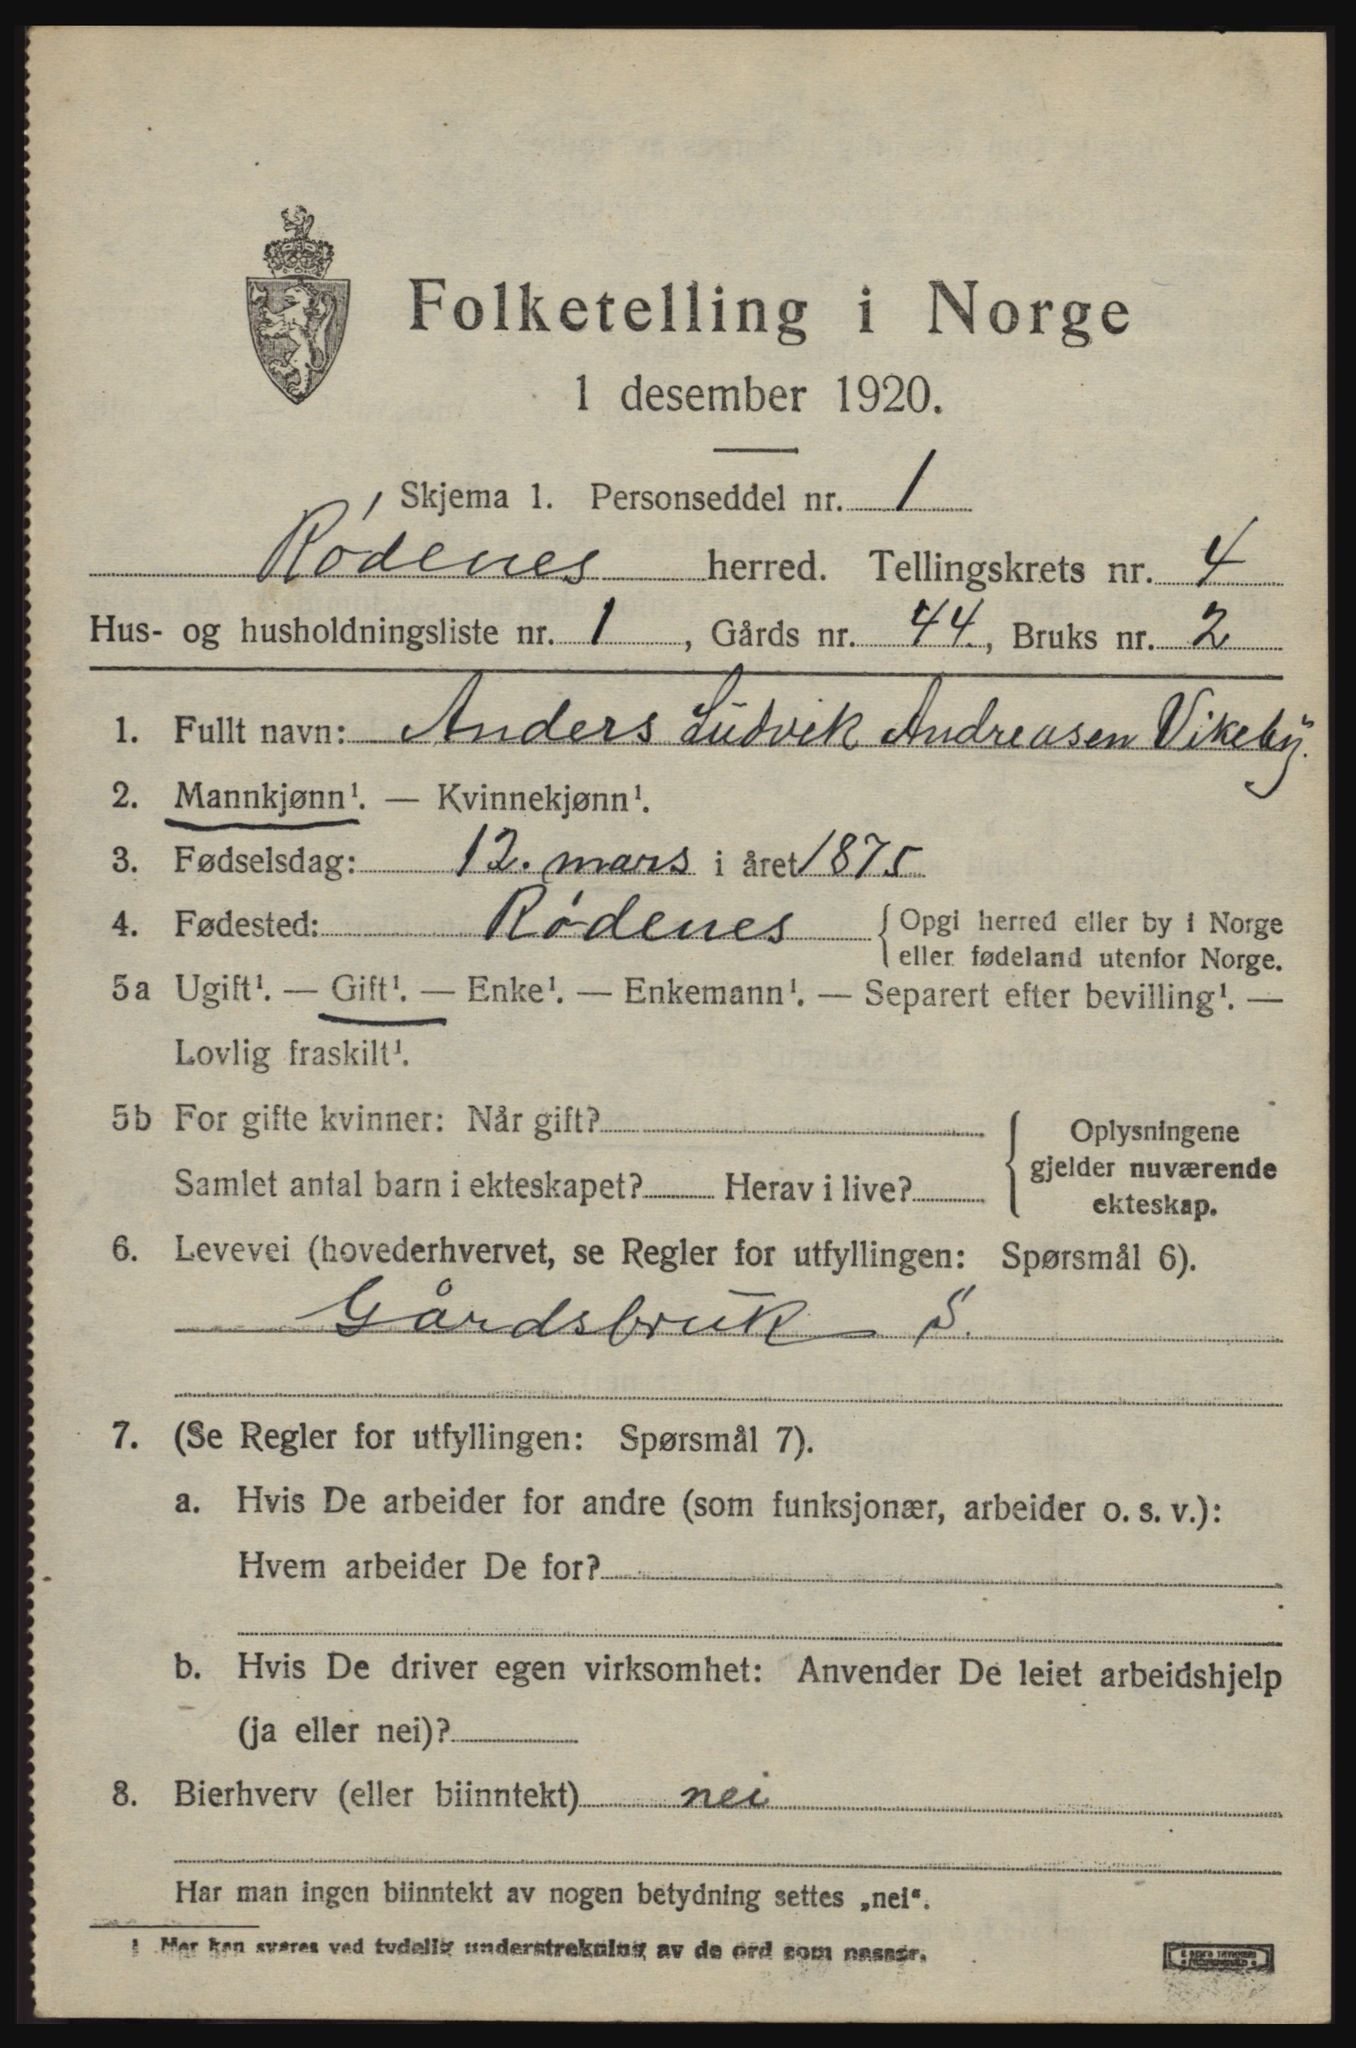 Folketelling i Norge
1 desember 1920.
Skjema 1. Personseddel nr. 1
Rødenes herred. Tellingskrets nr. 4
Hus- og husholdningsliste nr. 1, Gårds nr. 44, Bruks nr. 2
1. Fullt navn: Anders Ludvik Andreasen Vikeby.
2. Mannkjønn¹. — Kvinnekjønn¹.
3. Fødselsdag: 12. mars i året 1875
4. Fødested: Rødenes { Opgi herred eller by i Norge
eller fødeland utenfor Norge.
5a Ugift¹. — Gift¹. — Enke¹. — Enkemann¹. — Separert efter bevilling¹. —
Lovlig fraskilt¹.
5b For gifte kvinner: Når gift?
Samlet antal barn i ekteskapet? Herav i live?
{ Oplysningene
gjelder nuværende
ekteskap.
6. Levevei (hovederhvervet, se Regler for utfyllingen: Spørsmål 6).
Gårdsbruk S.
7. (Se Regler for utfyllingen: Spørsmål 7).
a. Hvis De arbeider for andre (som funksjonær, arbeider o. s. v.):
Hvem arbeider De for?
b. Hvis De driver egen virksomhet: Anvender De leiet arbeidshjelp
(ja eller nei)?
8. Bierhverv (eller biinntekt) nei
Har man ingen biinntekt av nogen betydning settes „nei“.
1 Mer kan svares ved tydelig understrekning av de ord som passer.